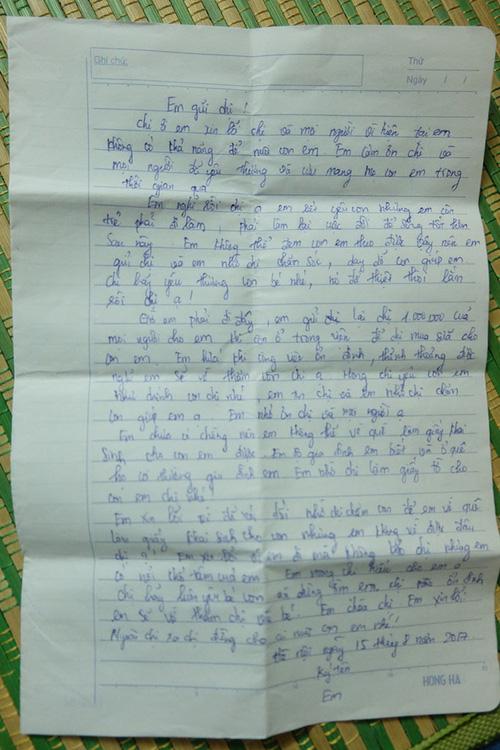 Ghi chúc
Thứ
Ngày / /
Em gửi chị!
Chị ơi em xin lỗi chị và mọi người vì hiện tại em
không có khả năng để nuôi con em. Em cảm ơn chị và
mọi người đã yêu thương và cưu mang mẹ con em trong
thời gian qua
Em nghĩ rồi chị ạ em rất yêu con nhưng em còn
trẻ phải đi làm, phải làm lại cuộc đời để sống tốt hơn
sau này. Em không thể đem con em theo được vậy nên em
gửi chị và em nhờ chị chăm sóc, dạy dỗ con giúp em
Chị hãy yêu thương con bé nhé, nó đã thiệt thòi lắm
rồi chị ạ!
Giờ em phải đi đây, em gửi chị lại chị 1.000.000 của
mọi người cho em khi em ở trong viện để chị mua sữa cho
con em. Em hứa khi công việc ổn định, thỉnh thoảng được
nghỉ em sẽ về thăm con chị ạ. Mong chị yêu con em
như chính con chị nhé, em tin chị và em nhờ chị chăm
con giúp em ạ. Em nhớ ơn chị và mọi người ạ
Em chưa có chồng nên em không thể về quê làm giấy khai
sinh cho con em được. Em gia đình em biết và ở quê
họ cười gia đình em. Em nhờ chị làm giấy tờ cho
con em chị nhé!
Em xin lỗi vì đã nói dối nhờ chị chăm con để em về quê
làm giấy khai sinh cho con nhưng em không về được đâu
chị ạ. Em xin lỗi đi mà không bảo chị nhưng em
có nỗi khổ tâm của em. Em mong chị hiểu cho em ạ
Chị hãy luôn yêu bé con em chị nhé ổn định
em sẽ về thăm chị và bé. Em chào chị. Em xin lỗi.
Người chị ơi chị đừng cho ai nuôi con em nhé!
Hà Nội ngày 15 tháng 8 năm 2017
Ký tên
Em
HONG HA